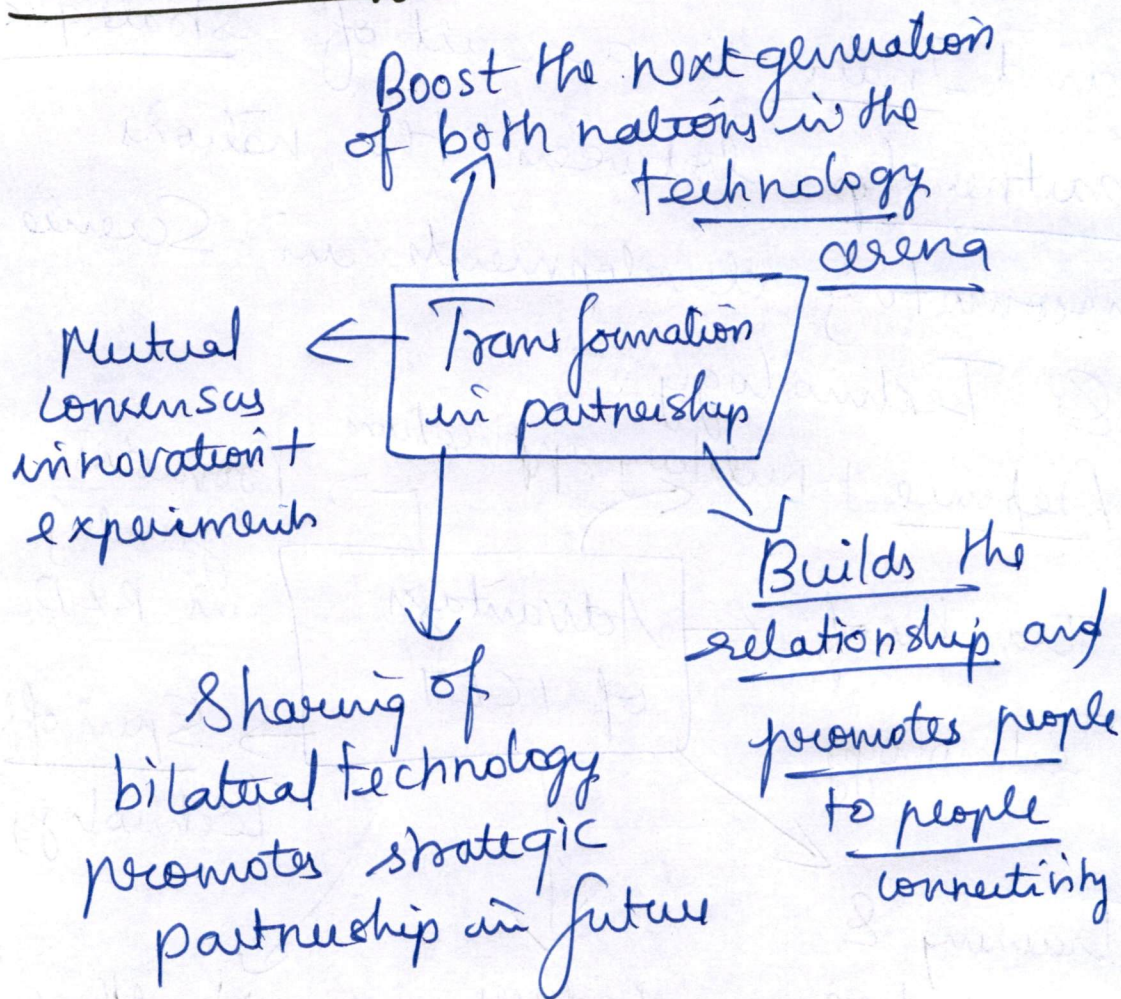 Boost the next generation
of both nations in the
technology
arena
Transformation
in partnership
Mutual
consensus
innovation +
experiments
Builds the
relationship and
promotes people
to people
connectivity
Sharing of
bilateral technology
promotes strategic
partnership in future